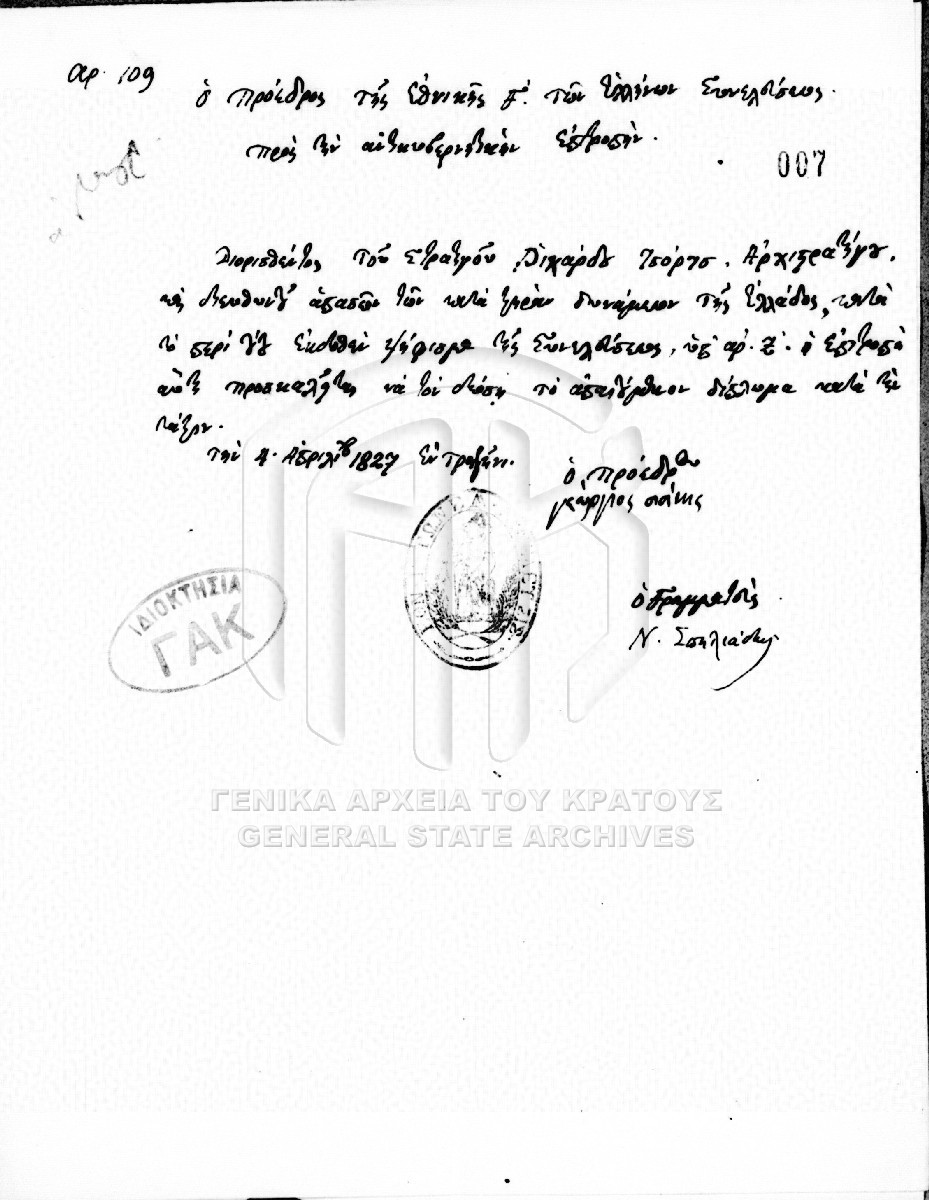 αρ. 109
ὁ πρόεδρος τῆς ἐθνικῆς γ΄. τῶν ἑλλήνων Συνελεύσεως.
πρὸς τὴν ἀντικυβερνητικὴν ἐπιτροπήν.
007
Διορισθέντος τοῦ στρατηγοῦ Ῥιχάρδου Τσόρτσ. Ἀρχιστρατήγου,
καὶ διευθυντοῦ ἁπασῶν τῶν κατὰ ξηρὰν δυνάμεων τῆς Ἑλλάδος, κατὰ
τὸ περὶ τούτου ἐκδοθὲν ψήφισμα τῆς Συνελεύσεως, ὑπ' ἀρ. Ζ. ἡ ἐπιτροπὴ
αὕτη προσκαλεῖται νὰ τοῦ δώσῃ τὸ ἀπαιτούμενον δίπλωμα κατὰ τὴν
τάξιν.
τὴν 4. Ἀπριλίου 1827 ἐν Τροιζῆνι.
ὁ πρόεδρος
γεώργιος σισίνης
ὁ Γραμματεὺς
Ν. Σπηλιάδης
ΙΔΙΟΚΤΗΣΙΑ
ΓΑΚ
ΓΕΝΙΚΑ ΑΡΧΕΙΑ ΤΟΥ ΚΡΑΤΟΥΣ
GENERAL STATE ARCHIVES